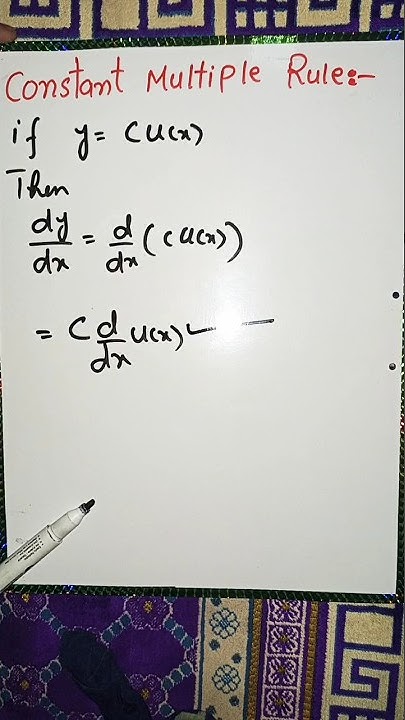 Constant Multiple Rule:-
if y = CU(x)
Then
dy/dx = d/dx (CU(x))
= C d/dx U(x)